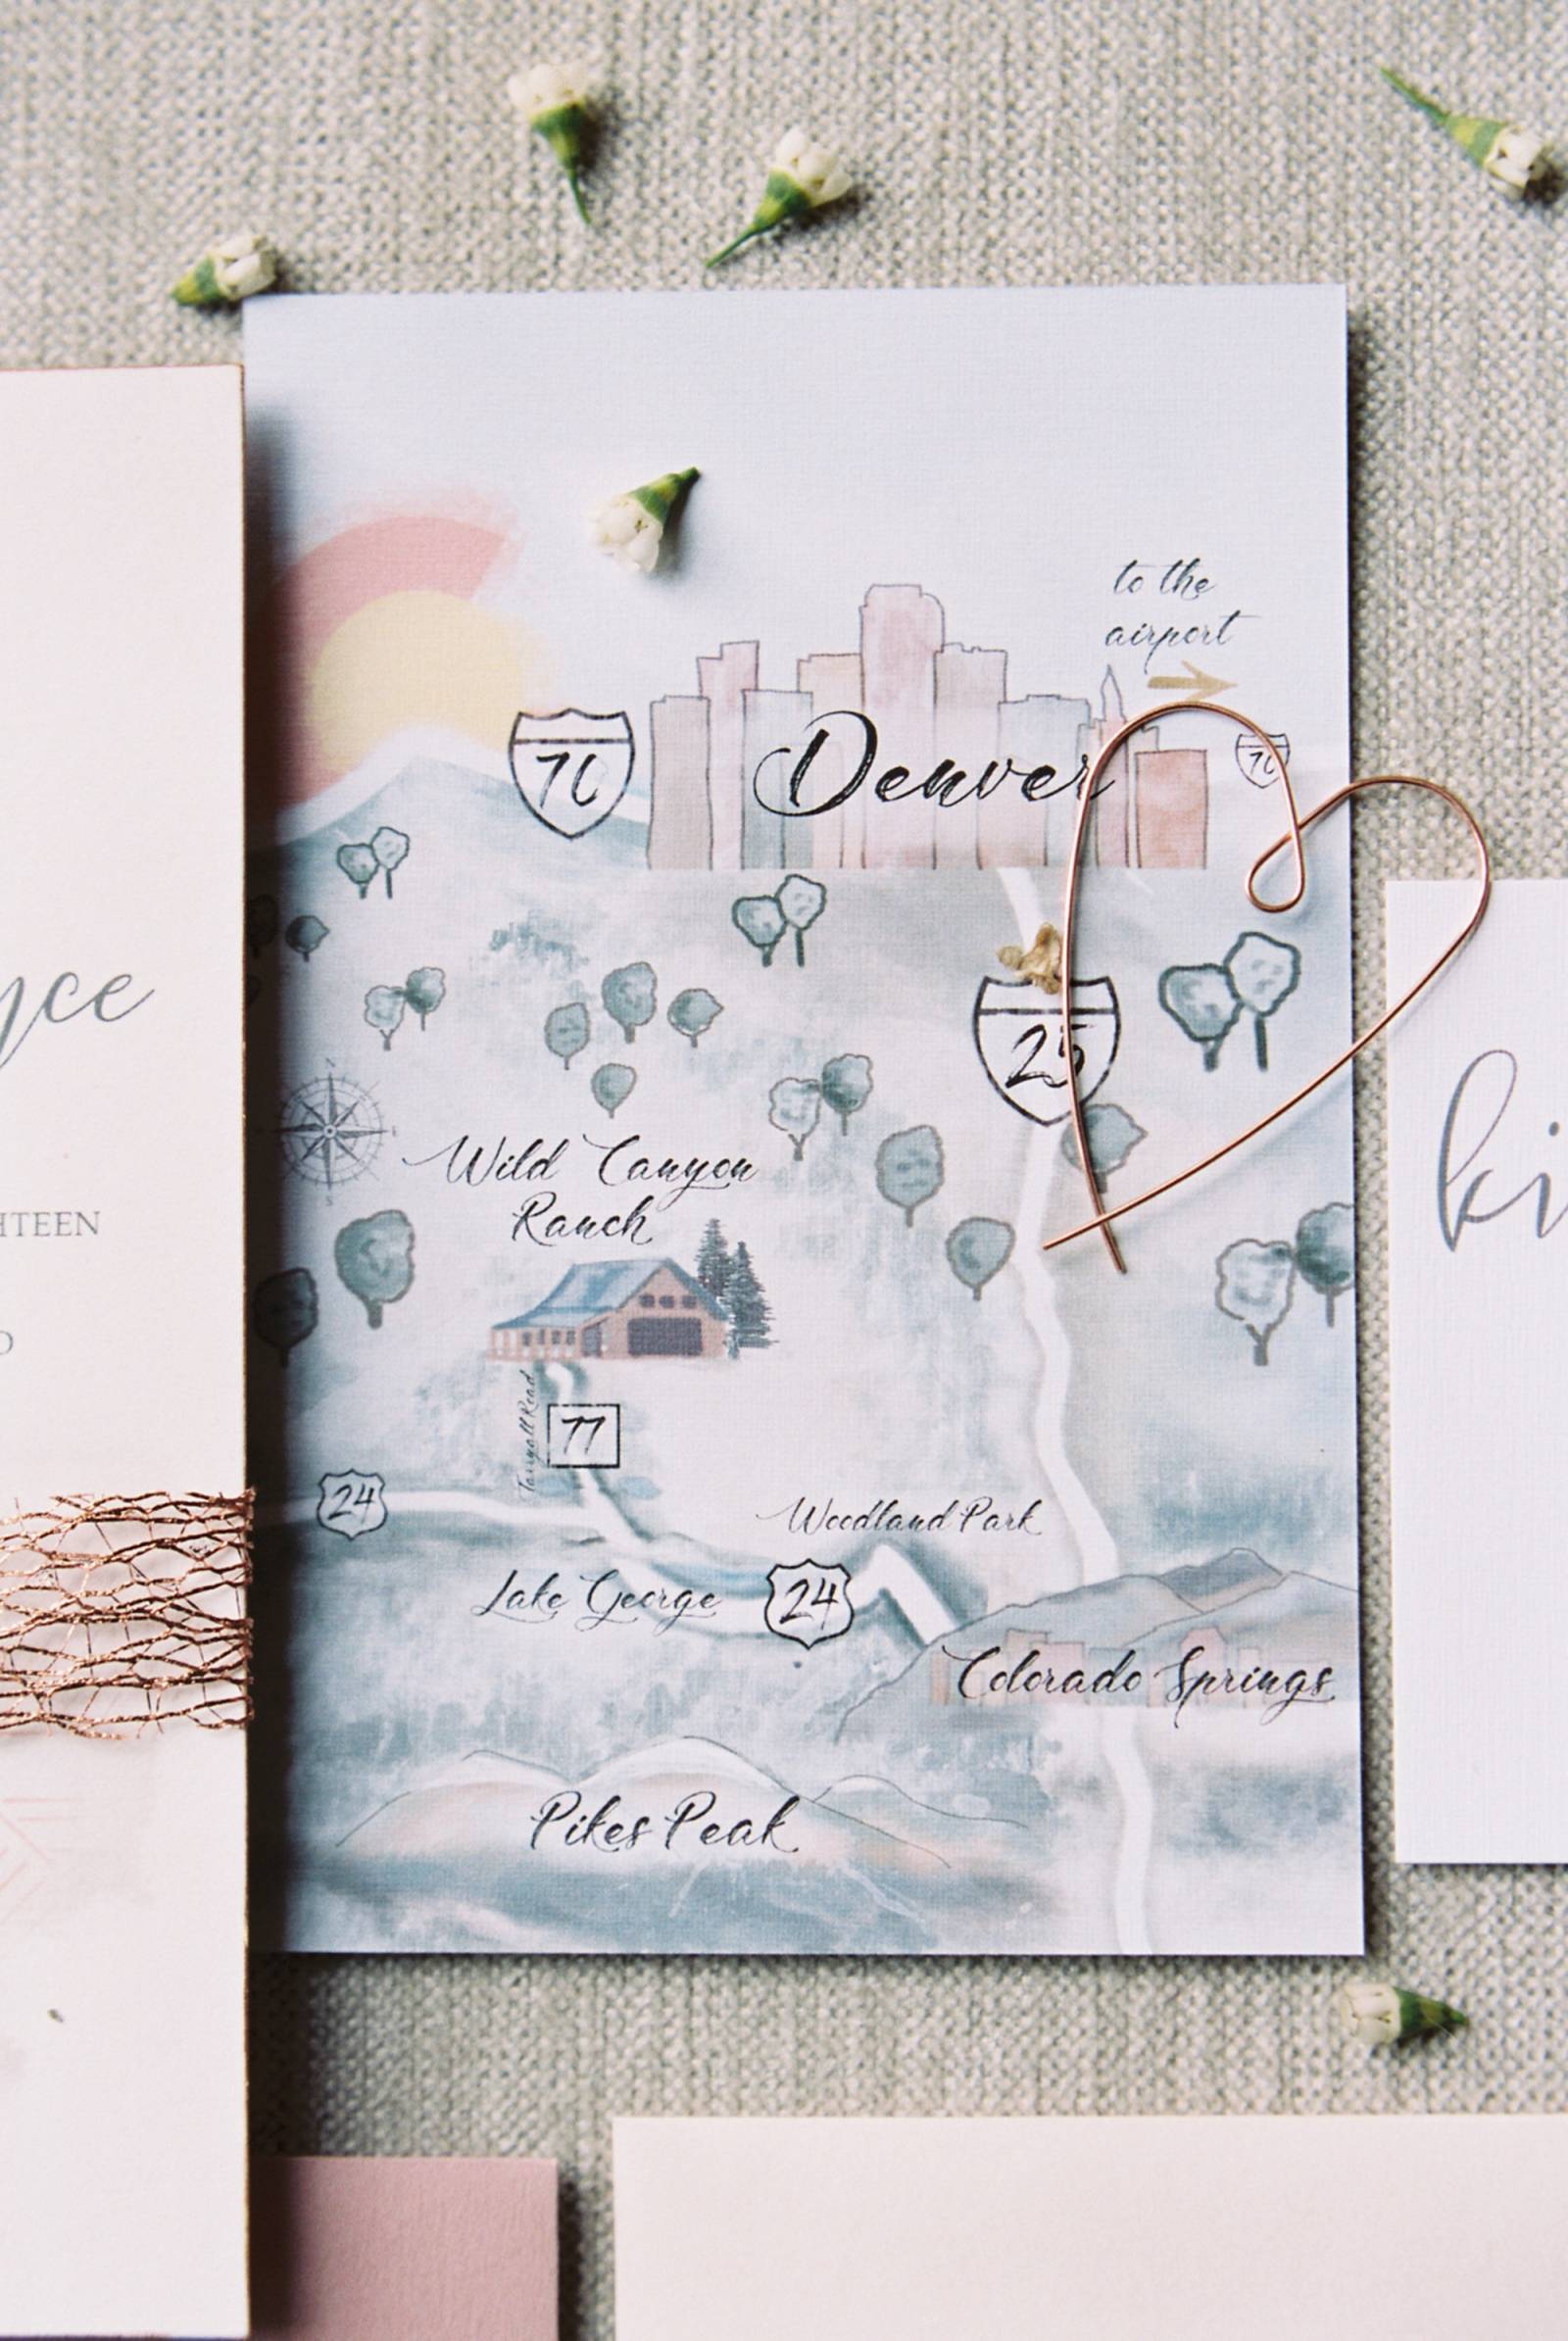 to the
airport
70
Denver
70
25
Wild Canyon
Ranch
Tarryall Road
77
24
Woodland Park
Lake George
24
Colorado Springs
Pikes Peak
yce
HTEEN
ki